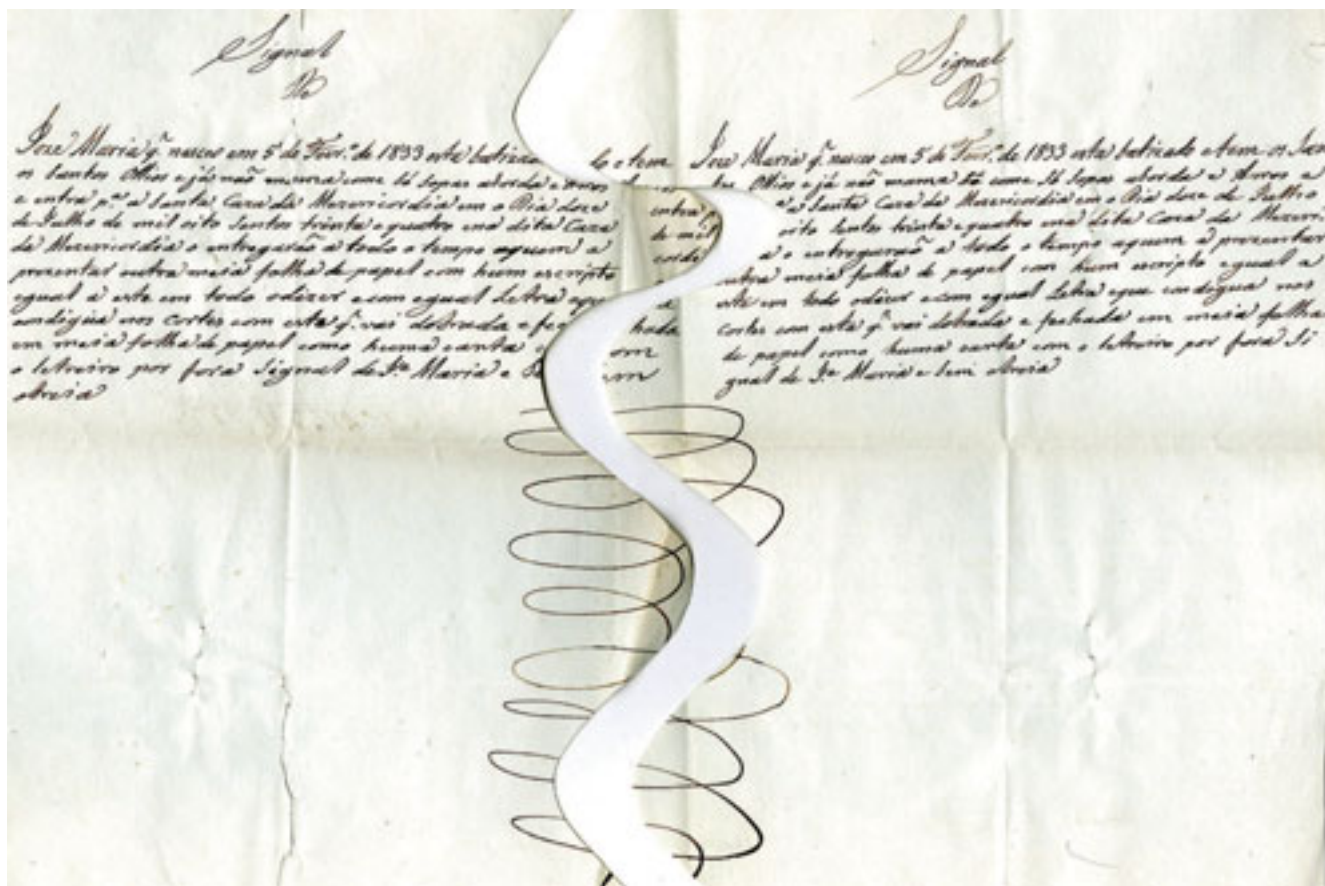 Signal
De
Jose Maria q. nasceo em 5 de Fevr.º de 1833 esta batizado e tem
os Santos Olios e já não mama come Só Sopas asorda e arros
e entra p.ª a Santa Caza da Mezericordia em o Dia doze
de Julho de mil oito Sentos trinta e quatro e na dita Caza
da Mezericordia o entregarão a todo o tempo aquem a
prezentar outra meia folha de papel com hum escripto
egual a este em todo odizer e com egual Letra e que
condigua nos cortes com esta q. vai dobrada e fechada
em meia folha de papel como huma carta com
o letreiro por fora Signal de J.e Maria e
Signal
De
Jose Maria q. nasceo em 5 de Fevr.º de 1833 esta batizado e tem os San
tos Olios e já não mama Só come Só Sopas asorda e Arros e
entra p.ª a Santa Caza da Mezericordia em o Dia doze de Julho
de mil oito Sentos trinta e quatro e na dita Caza da Mezeri
cordia o entregarão a todo o tempo aquem a prezentar
outra meia folha de papel com hum escripto egual a
este em todo odizer e com egual Letra e que condigua nos
cortes com esta q. vai dobrada e fechada em meia folha
de papel como huma carta com o letreiro por fora Si
gnal de J.e Maria e